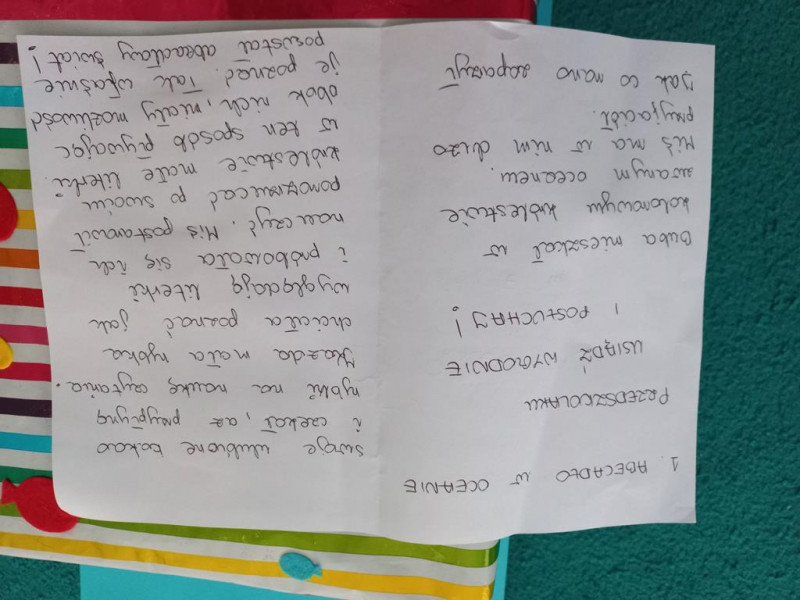 1. ABECADŁO W OCEANIE
PRZEDSZKOLAKU
USIĄDŹ WYGODNIE
I POSŁUCHAJ!
Buba mieszkał w
kolorowym królestwie
zwanym oceanem.
Miś ma w nim dużo
przyjaciół.
Jak co rano zaparzył
swoje ulubione kakao
i czekał, aż przypłyną
rybki na naukę czytania.
Każda mała rybka
chciała poznać jak
wyglądają literki
i próbowała się ich
nauczyć. Miś postanowił
porozrzucać po swoim
królestwie małe literki.
W ten sposób pływając
obok nich, miały możliwość
je poznać. Tak właśnie
powstał abecadłowy świat!